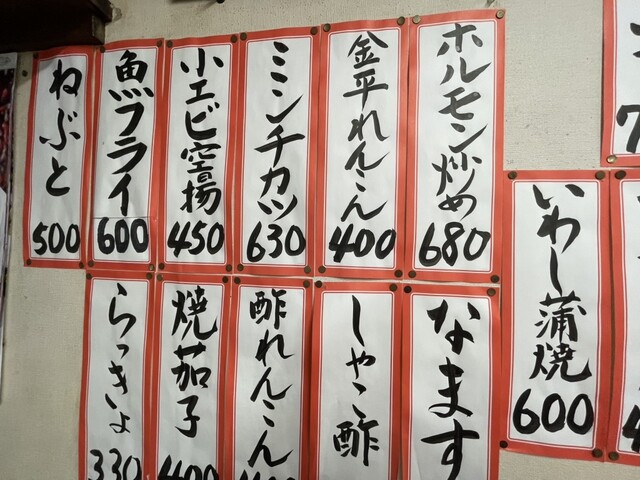 ホルモン炒め
680
金平れんこん
400
ミンチカツ
630
小エビ空揚
450
魚フライ
600
ねぶと
500
いわし蒲焼
600
なます
しゃこ酢
酢れんこん
焼茄子
400
らっきょ
330